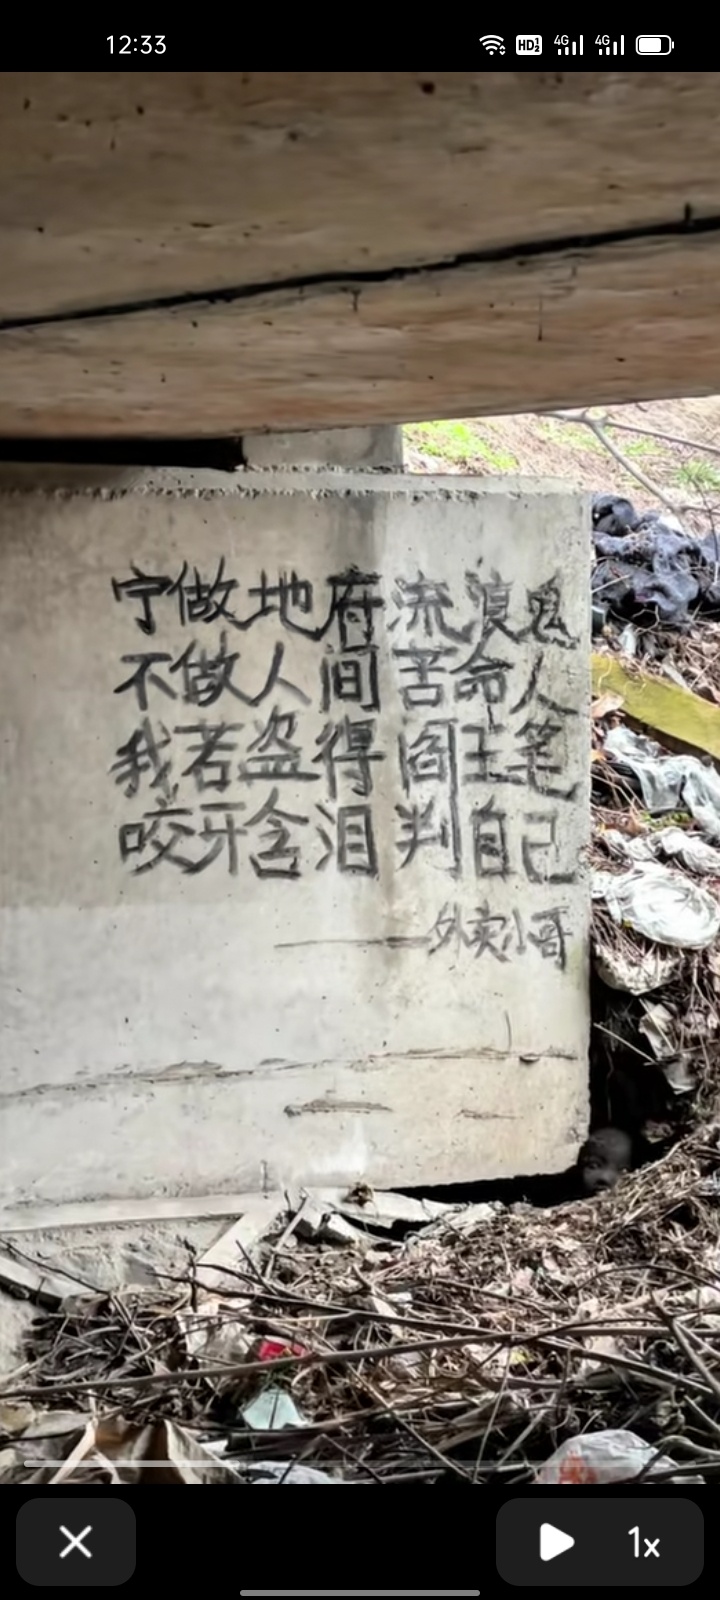 12:33
HD 4G 4G
宁做地府流浪鬼
不做人间苦命人
我若盗得阎王笔
咬牙含泪判自己
——外卖小哥
1x